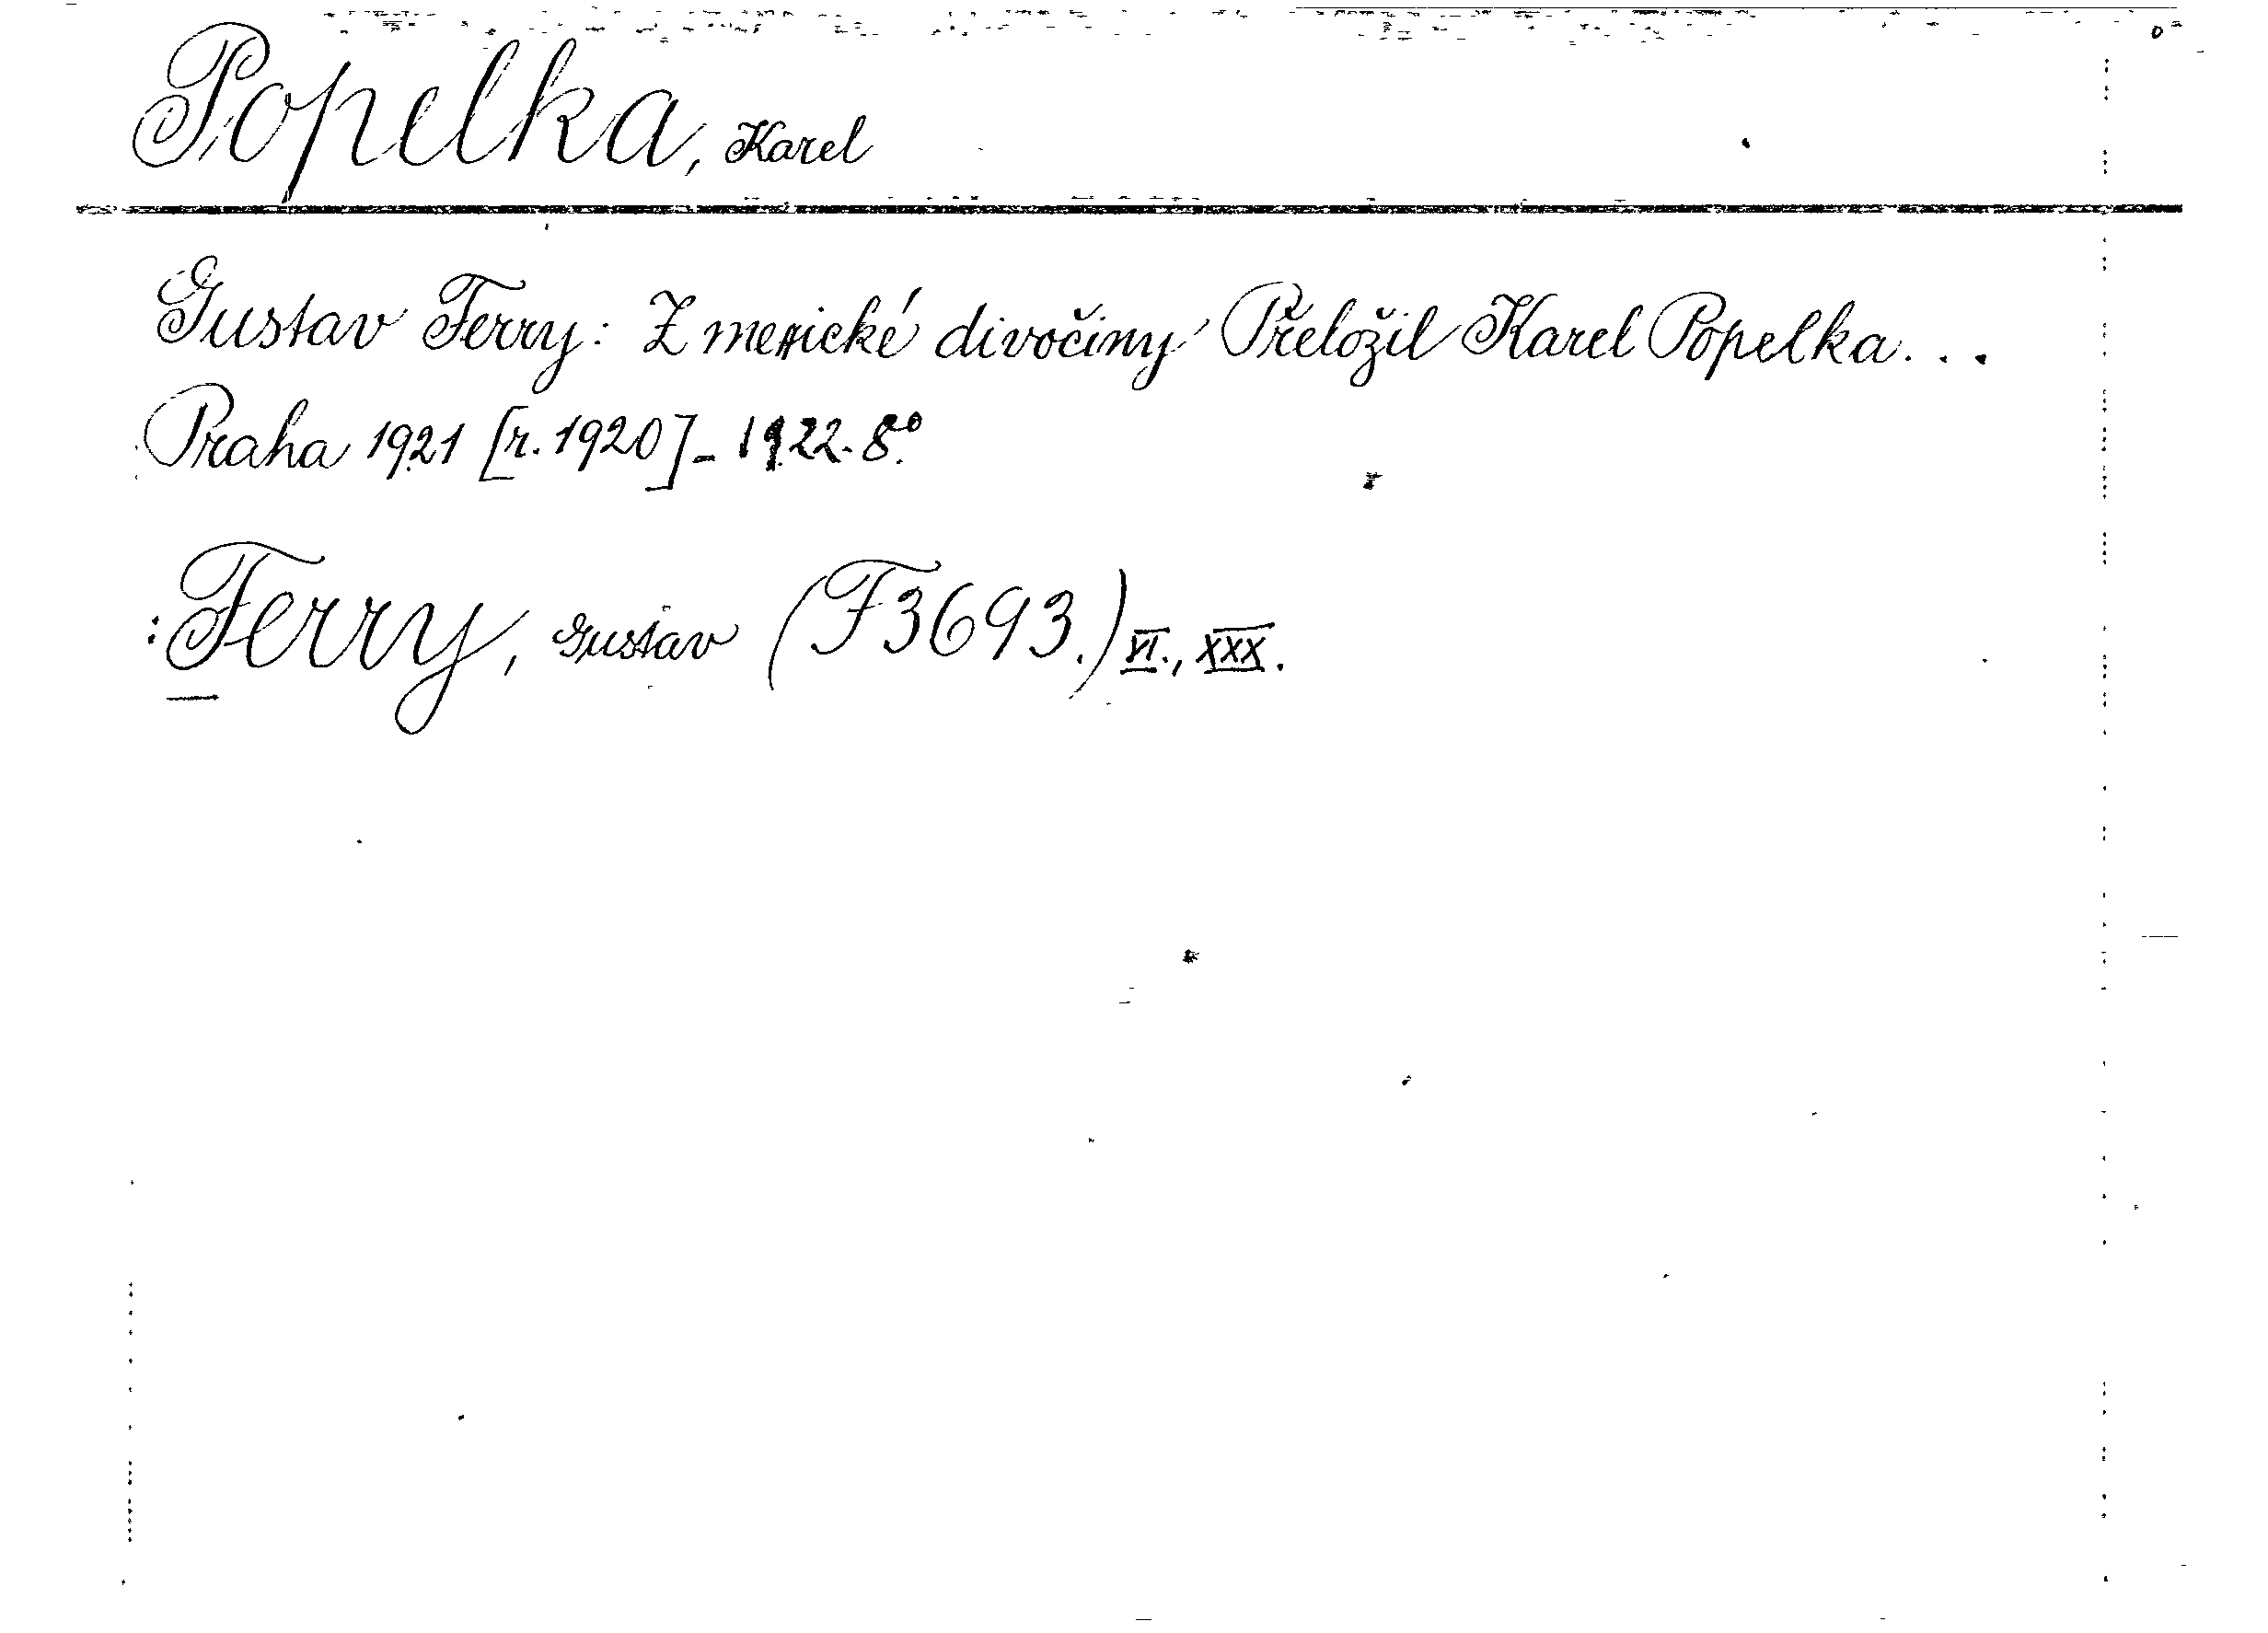 Popelka, Karel
Gustav Ferry: Z mexické divočiny Přeložil Karel Popelka...
Praha 1921 [r. 1920] - 1922. 8°.
: Ferry, Gustav (F3693.) VI., XXX.